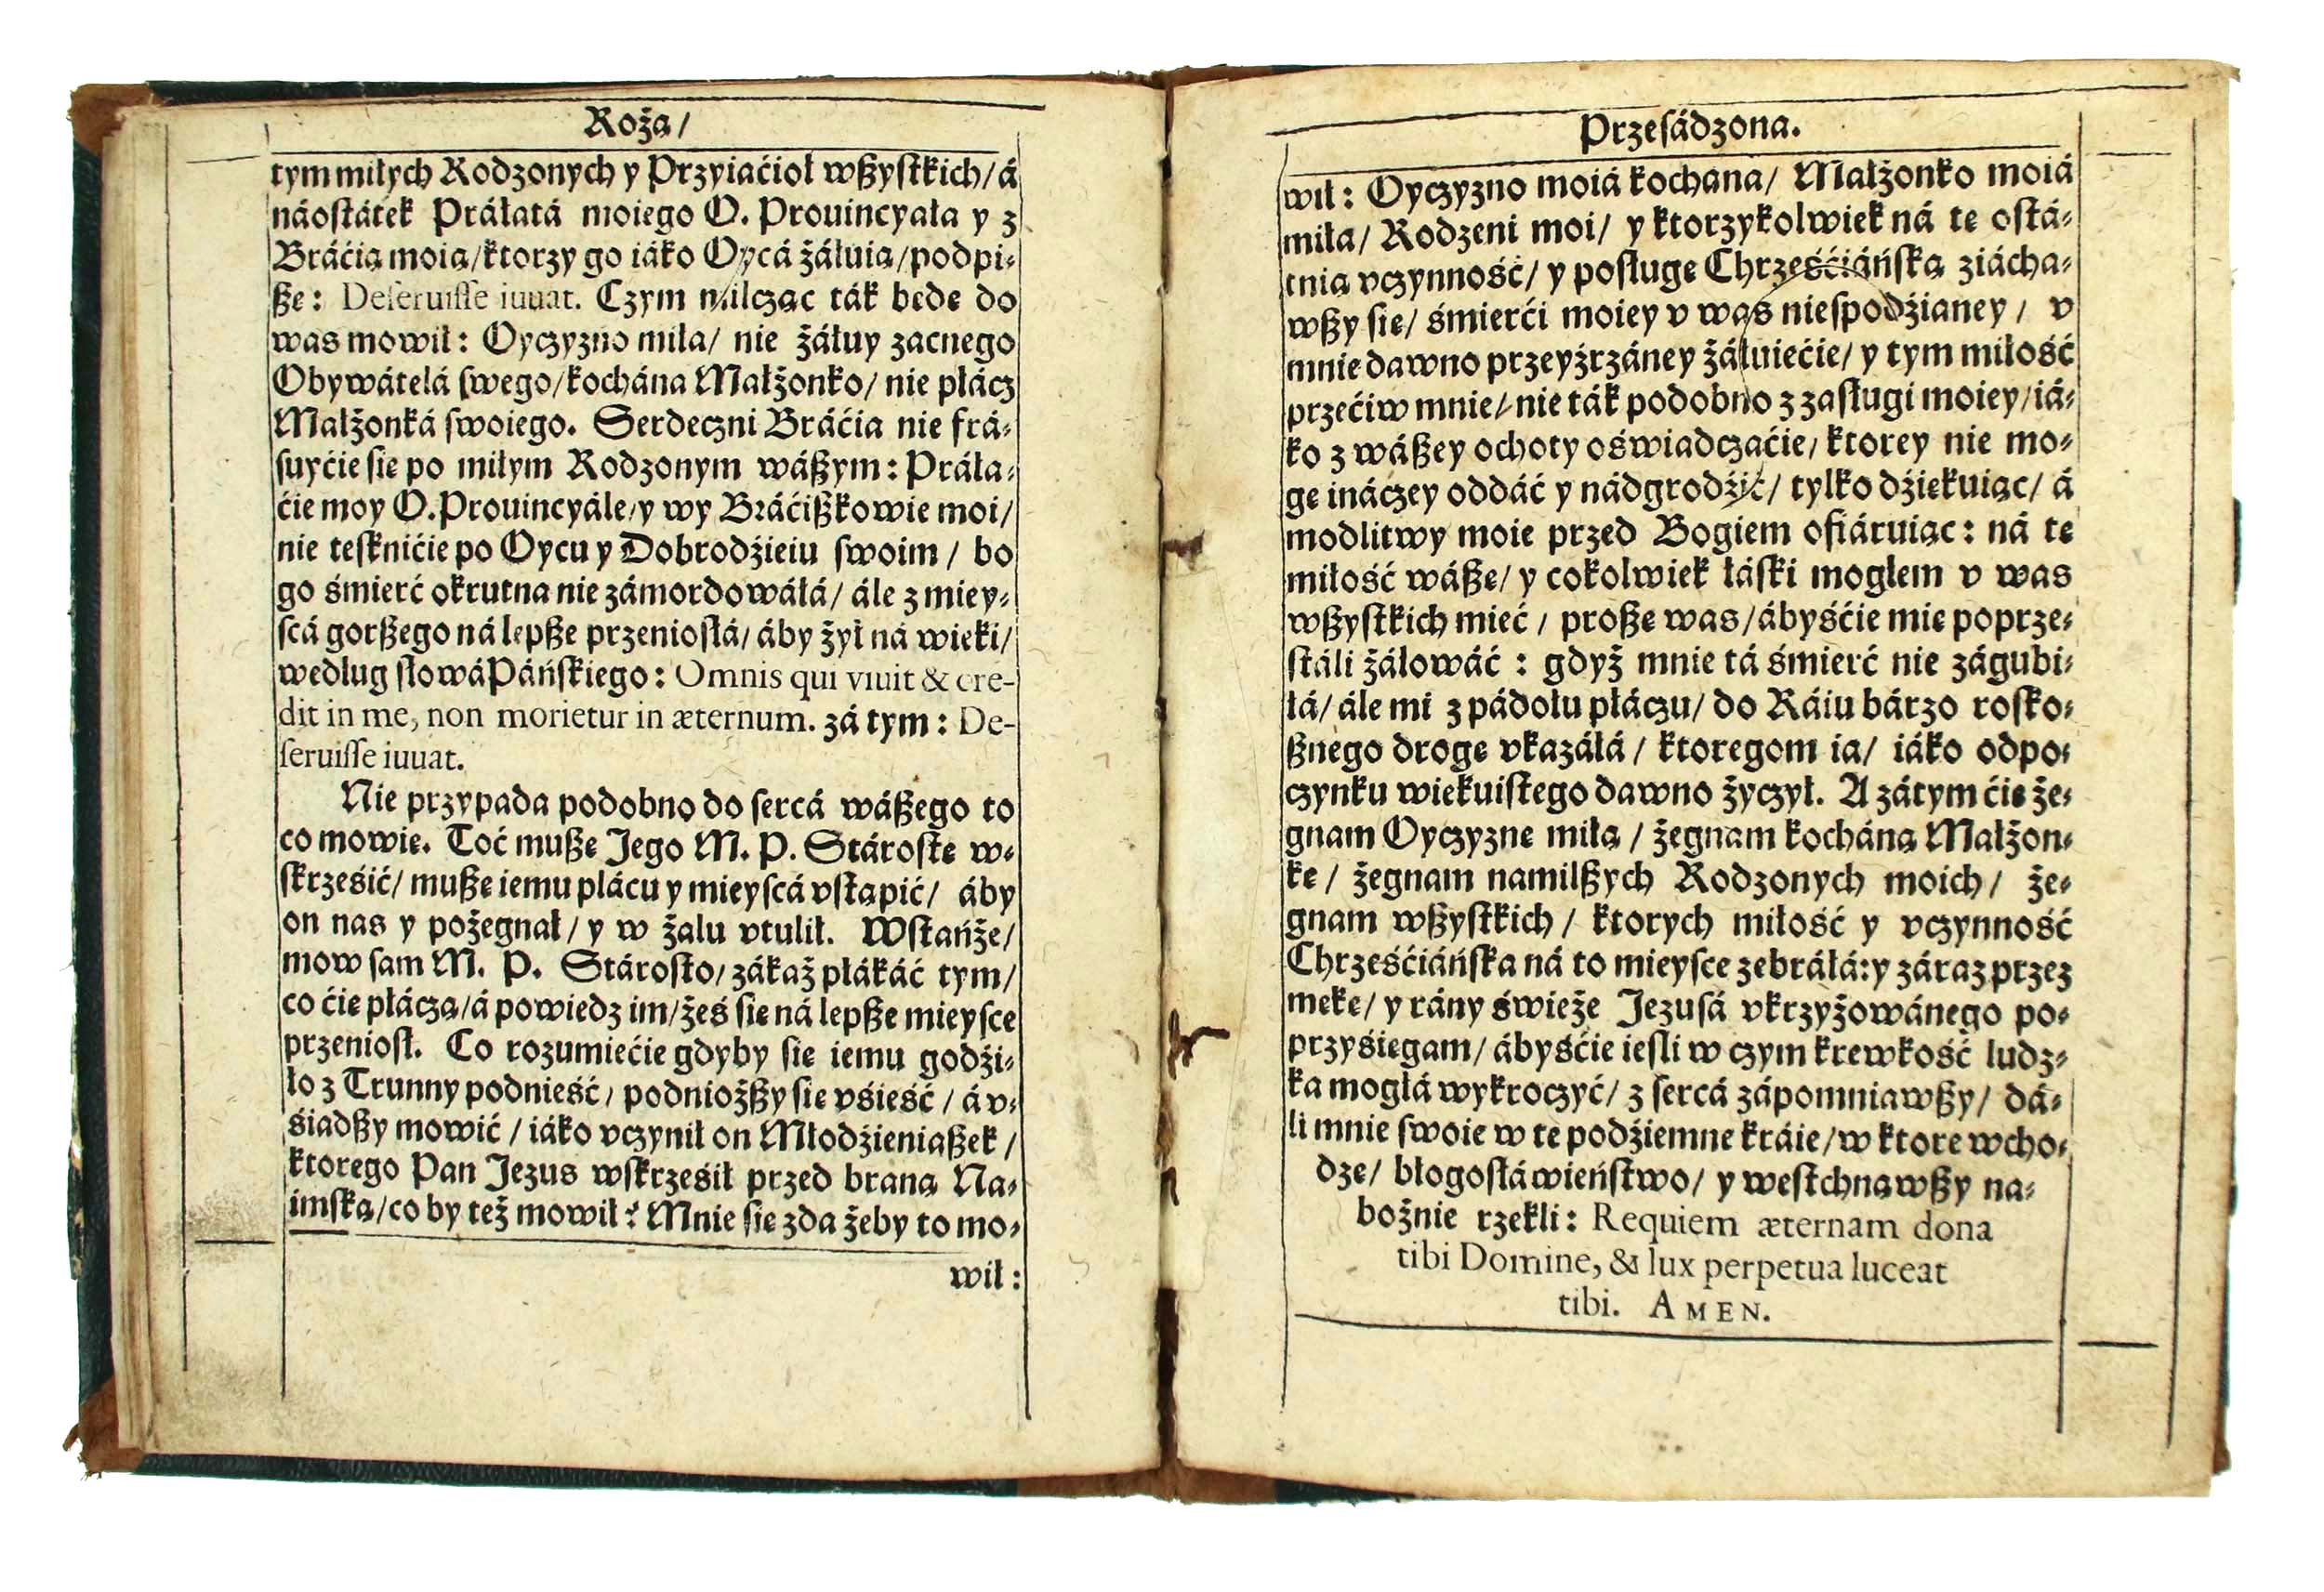 Roża/
tym miłych Rodzonych y Przyiaćioł wßyſtkich/ á
náoſtátek Práłatá moiego O. Prouincyała y z
Bráćią moią/ ktorzy go iáko Oycá żáłuią/ podpi-
ßę: Deſeruiſſe iuuat. Czym milcząc ták będę do
was mowił: Oyczyzno miła/ nie żáłuy zacnego
Obywátelá ſwego/ kochána Małżonko/ nie płácz
Małżonká ſwoiego. Serdeczni Bráćia nie frá-
ſuyćie ſię po miłym Rodzonym wáßym: Práła-
ćie moy O. Prouincyále/ y wy Bráćißkowie moi/
nie teſknićie po Oycu y Dobrodźieiu ſwoim/ bo
go śmierć okrutna nie zámordowáłá/ ále z miey-
ſcá gorßego ná lepße przenioſłá/ áby żył ná wieki/
według ſłowá Páńſkiego: Omnis qui viuit & cre-
dit in me, non morietur in æternum. zá tym: De-
ſeruiſſe iuuat.
Nie przypada podobno do ſercá wáßego to
co mowię. Toć mußę Jego M. P. Stároſtę w-
ſkrześić/ mußę iemu plácu y mieyſcá vſtąpić/ áby
on nas y pożegnał/ y w żalu vtulił. Wſtańże/
mow ſam M. P. Stároſto/ zákaż płákáć tym/
co ćię płáczą/ á powiedz im/ żeś ſię ná lepße mieyſce
przenioſł. Co rozumiećie gdyby ſię iemu godźi-
ło z Trunny podnieść/ podniożßy ſię vśieść/ á v-
śiadßy mowić/ iáko vczynił on Młodźieniaßek/
ktorego Pan Jezus wſkrześił przed braną Na-
imſką/ co by też mowił? Mnie ſię zda żeby to mo-
wił:
Przeſádzona.
wił: Oyczyzno moiá kochana/ Małżonko moiá
miła/ Rodzeni moi/ y ktorzykolwiek ná tę oſtá-
tnią vczynność/ y poſługę Chrześćiáńſką ziácha-
wßy ſię/ śmierći moiey v was nieſpodźianey/ v
mnie dawno przeyźrzáney żáłuiećie/ y tym miłość
przećiw mnie/ nie ták podobno z zaſługi moiey/ iá-
ko z wáßey ochoty oświadczaćie/ ktorey nie mo-
gę ináczey oddáć y nádgrodźić/ tylko dźiękuiąc/ á
modlitwy moie przed Bogiem ofiáruiąc: ná tę
miłość wáßę/ y cokolwiek łáſki mogłem v was
wßyſtkich mieć/ proßę was/ ábyśćie mię poprze-
ſtáli żáłowáć: gdyż mnie tá śmierć nie zágubi-
łá/ ále mi z pádołu płáczu/ do Ráiu bárzo roſko-
ßnego drogę vkazáłá/ ktoregom ia/ iáko odpo-
czynku wiekuiſtego dawno życzył. A zátym ćię że-
gnam Oyczyznę miłą/ żegnam kochaną Małżon-
kę/ żegnam namilßych Rodzonych moich/ że-
gnam wßyſtkich/ ktorych miłość y vczynność
Chrześćiáńſka ná to mieyſce zebráłá: y záraz przez
mękę/ y rány świeże Jezuſá vkrzyżowánego po-
przyśięgam/ ábyśćie ieſli w czym krewkość ludz-
ka mogłá wykroczyć/ z ſercá zápomniawßy/ dá-
li mnie ſwoie w te podźiemne kráie/ w ktore wcho-
dzę/ błogoſłáwieńſtwo/ y weſtchnąwßy na-
bożnie rzekli: Requiem æternam dona
tibi Domine, & lux perpetua luceat
tibi. AMEN.